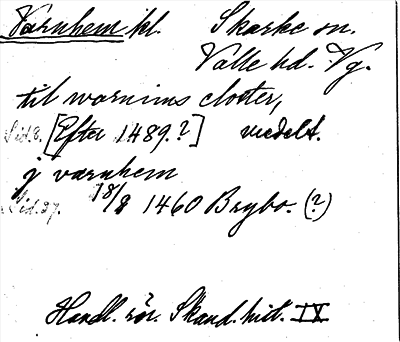 Varnhem kl. Skarke sn.
Valle hd. Vg.
til warnims closter,
Sid. 8. [Efter 1489.?] medelt.
j varnhem
Sid. 27. 18/8 1460 Brybo. (?)
Handl. rör. Skand. hist. IV